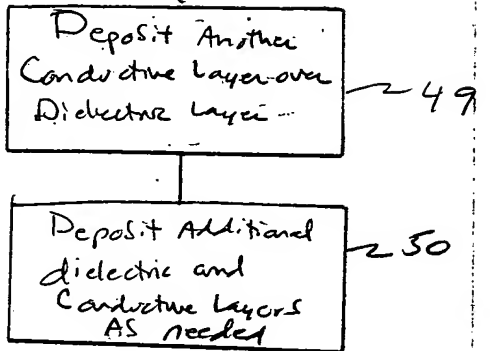 Deposit Another
Conductive Layer over
Dielectric Layer
49
Deposit Additional
dielectric and
Conductive Layers
AS needed
50